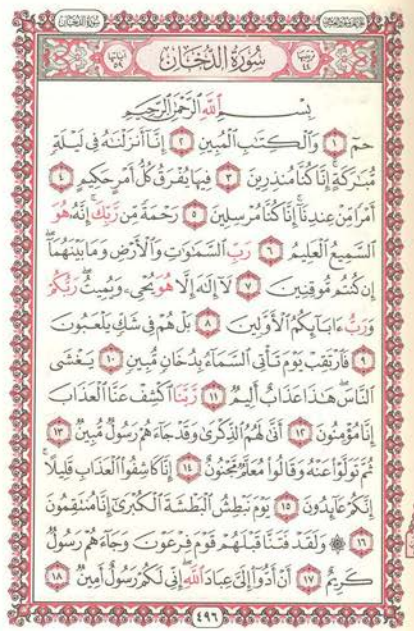 سُورَةُ الدُّخَانِ
ترتيبها ٤٤
آياتها ٥٩
بِسْمِ ٱللَّهِ ٱلرَّحْمَٰنِ ٱلرَّحِيمِ
حمٓ ١ وَٱلْكِتَٰبِ ٱلْمُبِينِ ٢ إِنَّآ أَنزَلْنَٰهُ فِى لَيْلَةٍ
مُّبَٰرَكَةٍ ۚ إِنَّا كُنَّا مُنذِرِينَ ٣ فِيهَا يُفْرَقُ كُلُّ أَمْرٍ حَكِيمٍ ٤
أَمْرًا مِّنْ عِندِنَآ ۚ إِنَّا كُنَّا مُرْسِلِينَ ٥ رَحْمَةً مِّن رَّبِّكَ ۚ إِنَّهُۥ هُوَ
ٱلسَّمِيعُ ٱلْعَلِيمُ ٦ رَبِّ ٱلسَّمَٰوَٰتِ وَٱلْأَرْضِ وَمَا بَيْنَهُمَآ ۖ
إِن كُنتُم مُّوقِنِينَ ٧ لَآ إِلَٰهَ إِلَّا هُوَ يُحْىِۦ وَيُمِيتُ ۖ رَبُّكُمْ
وَرَبُّ ءَابَآئِكُمُ ٱلْأَوَّلِينَ ٨ بَلْ هُمْ فِى شَكٍّ يَلْعَبُونَ
٩ فَٱرْتَقِبْ يَوْمَ تَأْتِى ٱلسَّمَآءُ بِدُخَانٍ مُّبِينٍ ١٠ يَغْشَى
ٱلنَّاسَ ۖ هَٰذَا عَذَابٌ أَلِيمٌ ١١ رَّبَّنَا ٱكْشِفْ عَنَّا ٱلْعَذَابَ
إِنَّا مُؤْمِنُونَ ١٢ أَنَّىٰ لَهُمُ ٱلذِّكْرَىٰ وَقَدْ جَآءَهُمْ رَسُولٌ مُّبِينٌ ١٣
ثُمَّ تَوَلَّوْا۟ عَنْهُ وَقَالُوا۟ مُعَلَّمٌ مَّجْنُونٌ ١٤ إِنَّا كَاشِفُوا۟ ٱلْعَذَابِ قَلِيلًا ۚ
إِنَّكُمْ عَآئِدُونَ ١٥ يَوْمَ نَبْطِشُ ٱلْبَطْشَةَ ٱلْكُبْرَىٰٓ إِنَّا مُنتَقِمُونَ
١٦ ۞ وَلَقَدْ فَتَنَّا قَبْلَهُمْ قَوْمَ فِرْعَوْنَ وَجَآءَهُمْ رَسُولٌ
كَرِيمٌ ١٧ أَنْ أَدُّوٓا۟ إِلَىَّ عِبَادَ ٱللَّهِ ۖ إِنِّى لَكُمْ رَسُولٌ أَمِينٌ ١٨
٤٩٦